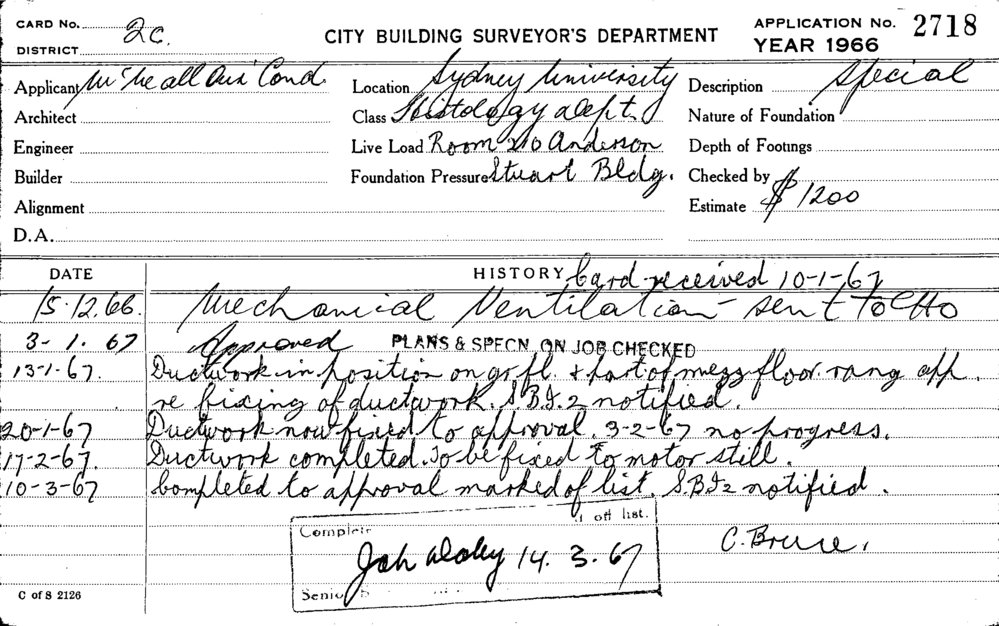 CARD No. 2c. CITY BUILDING SURVEYOR'S DEPARTMENT APPLICATION No. 2718
DISTRICT YEAR 1966
Applicant all Air Cond. Location Sydney University Description Special
Architect Class Histology dept. Nature of Foundation
Engineer Live Load Room 210 Anderson Depth of Footings
Builder Foundation Pressure Stuart Bldg. Checked by
Alignment Estimate $ 1200
D.A.
DATE HISTORY Card received 10-1-67
15.12.66. Mechanical Ventilation - sent to CHO
3-1.67 Approved PLANS & SPECN. ON JOB CHECKED
13-1-67. Ductwork in position on gr. fl. & part of mezz floor. rang app.
re fixing of ductwork. S.B.I.2 notified.
20-1-67 Ductwork now fixed to approval. 3-2-67 no progress.
17-2-67. Ductwork completed. To be fixed to motor still.
10-3-67 Completed to approval marked of list. S.B.I2 notified.
Complete off list.
14.3.67 C. Bruce.
Senio
C of S 2126